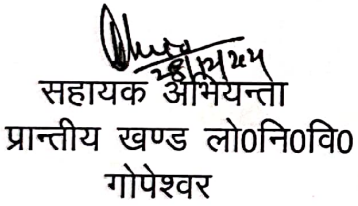 28/12/24
सहायक अभियन्ता
प्रान्तीय खण्ड लो0नि0वि0
गोपेश्वर